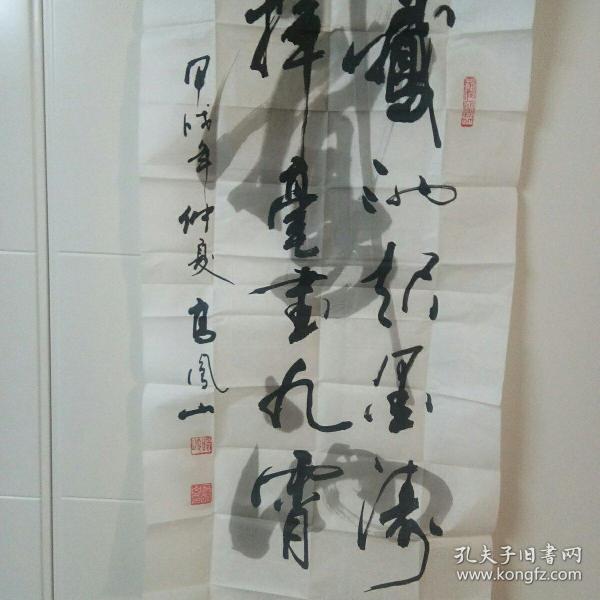 鳳池起墨濤
揮毫書九霄
甲戌年仲夏 高鳳山
孔夫子旧书网
www.kongfz.com